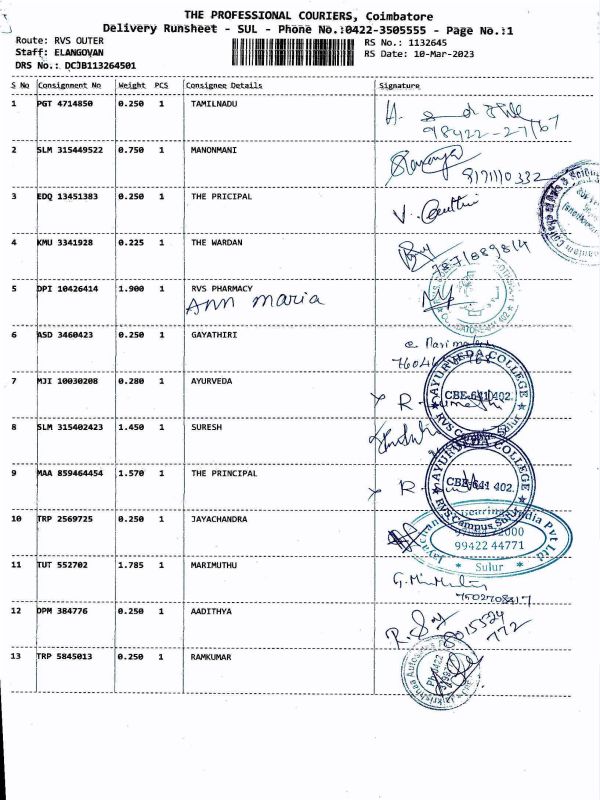 THE PROFESSIONAL COURIERS, Coimbatore
Delivery Runsheet - SUL - Phone No.:0422-3505555 - Page No.:1
Route: RVS OUTER
Staff: ELANGOVAN
DRS No.: DCJB113264501
RS No.: 1132645
RS Date: 10-Mar-2023
S No Consignment No Weight PCS Consignee Details Signature
1 PGT 4714850 0.250 1 TAMILNADU
98422-27167
2 SLM 315449522 0.750 1 MANONMANI
8171110332
3 EDQ 13451383 0.250 1 THE PRICIPAL
4 KMU 3341928 0.225 1 THE WARDAN
5 DPI 10426414 1.900 1 RVS PHARMACY
Ann maria
6 ASD 3460423 0.250 1 GAYATHIRI
7 MJI 10030208 0.280 1 AYURVEDA
AYURVEDA COLLEGE
CBE-641 402.
RVS Campus Sulur
8 SLM 315402423 1.450 1 SURESH
9 MAA 859464454 1.570 1 THE PRINCIPAL
AYURVEDA COLLEGE
CBE-641 402.
RVS Campus Sulur
10 TRP 2569725 0.250 1 JAYACHANDRA
India Pvt Ltd
99422 44771
* Sulur *
11 TUT 552702 1.785 1 MARIMUTHU
7502708417
12 DPM 384776 0.250 1 AADITHYA
8015524
772
13 TRP 5845013 0.250 1 RAMKUMAR